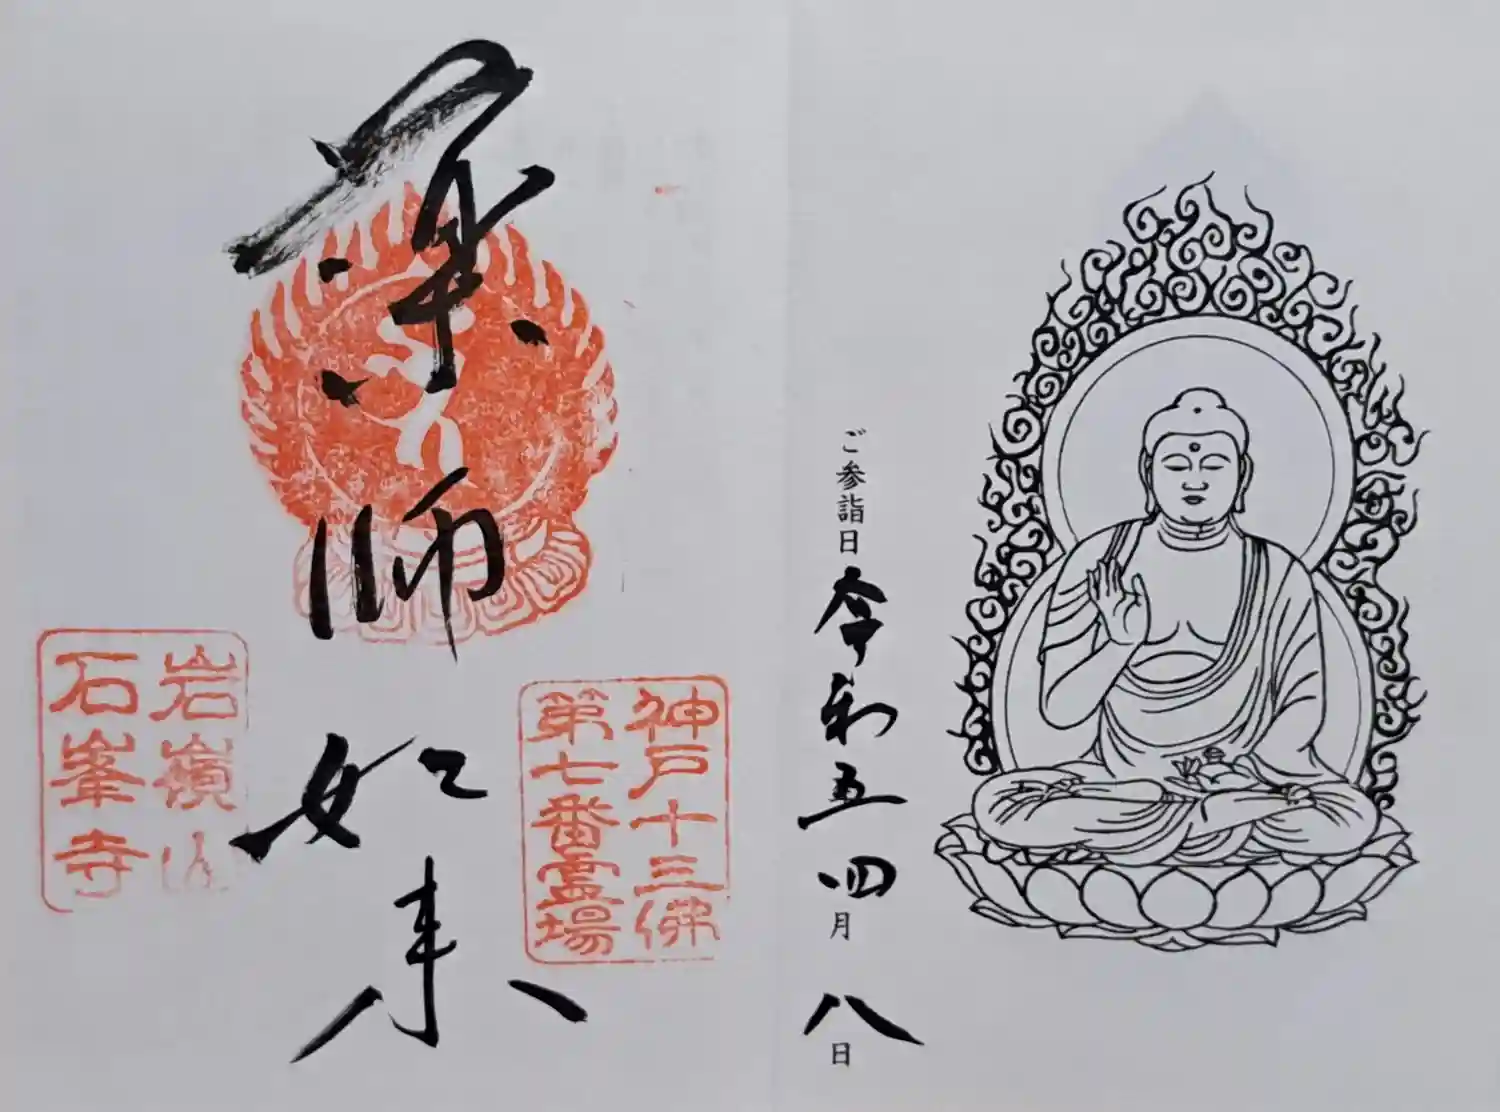 薬師如来
神戸十三佛
第七番霊場
岩嶺山
石峯寺
ご参詣日 令和五 四月 八日